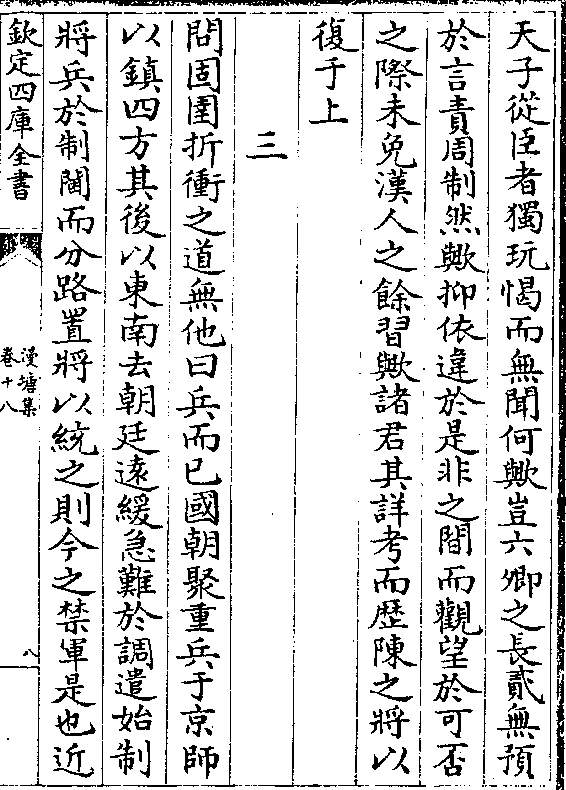 天子從臣者獨玩愒而無聞何歟豈六卿之長貳無預
於言責周制然歟抑依違於是非之間而觀望於可否
之際未免漢人之餘習歟諸君其詳考而歷陳之將以
復于上
三
問固圉折衝之道無他曰兵而已國朝聚重兵于京師
以鎮四方其後以東南去朝廷遠緩急難於調遣始制
將兵於制閫而分路置將以統之則今之禁軍是也近
欽定四庫全書
漫塘集
卷十八
八